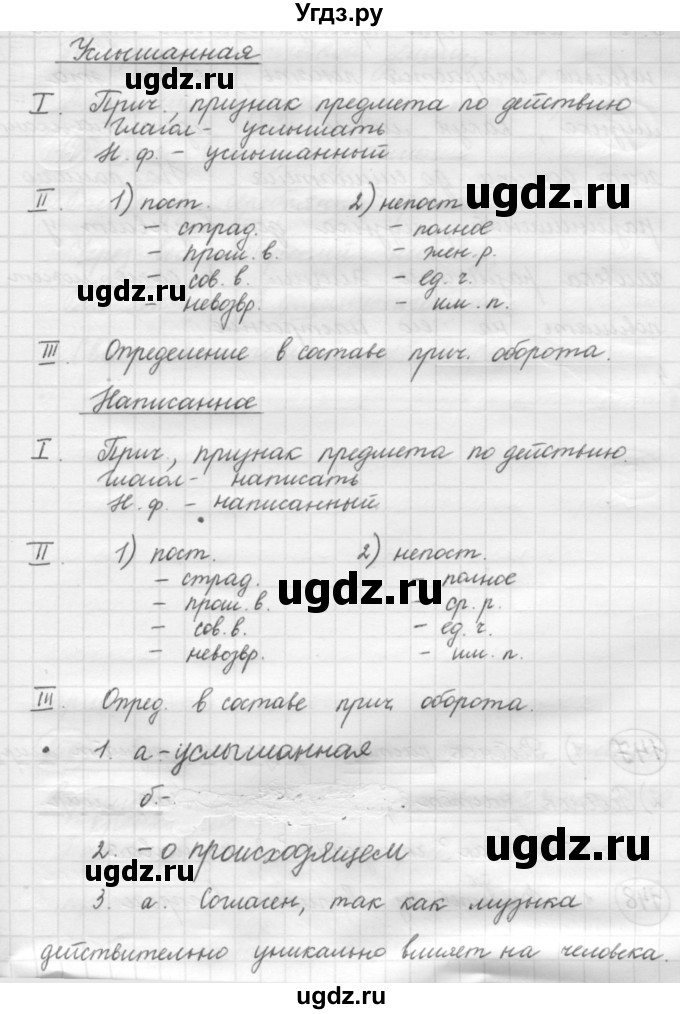 Угдз.ру
Услышанная
ugdz.ru
I. Прич., признак предмета по действию
Глагол - услышать
Н. ф. - услышанный
ugdz.ru
II. 1) пост. 2) непост.
- страд. - полное
- прош. в. - жен. р.
- сов. в. - ед. ч.
ugdz.ru
- невозвр. - им. п.
III. Определение в составе прич. оборота.
Написанное
I. Прич., признак предмета по действию.
Глагол - написать
Н. ф. - написанный
II 1) пост. 2) непост.
ugdz.ru
- страд. - полное
- прош. в. - ср. р.
- сов. в. - ед. ч.
- невозвр. - им. п.
III. Опред. в составе прич. оборота.
• 1. а - услышанная
б. -
ugdz.ru
2. - о происходящем
ugdz.ru
3. а. Согласен, так как музыка
действительно уникально влияет на человека.
ugdz.ru